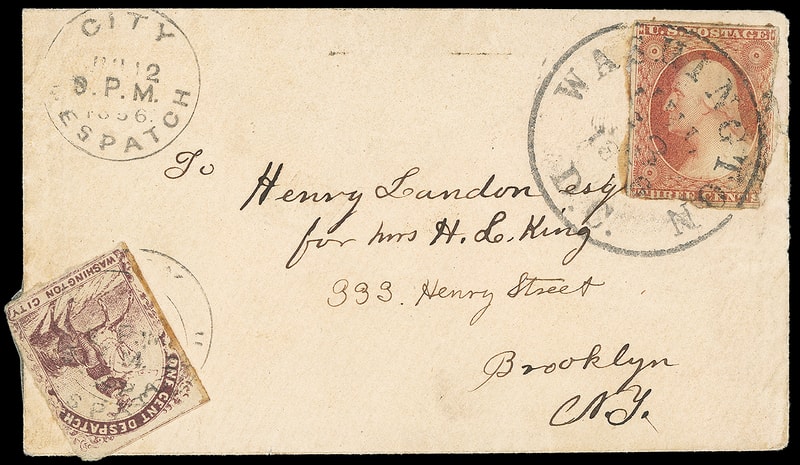 CITY
12
P.M.
1856.
DESPATCH
WASHINGTON
D.C.
U.S. POSTAGE
THREE CENTS
To
Henry Landon esq
for Mrs H. L. King
333. Henry Street
Brooklyn
N.Y.
WASHINGTON CITY
ONE CENT DESPATCH